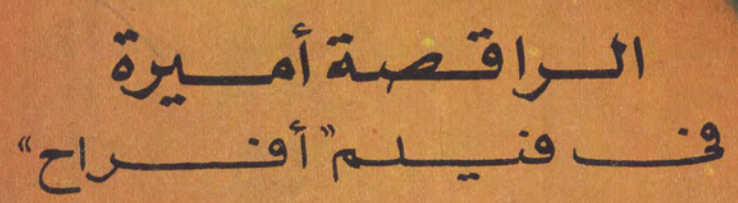 الراقصة أميرة
في فيلم "أفراح"